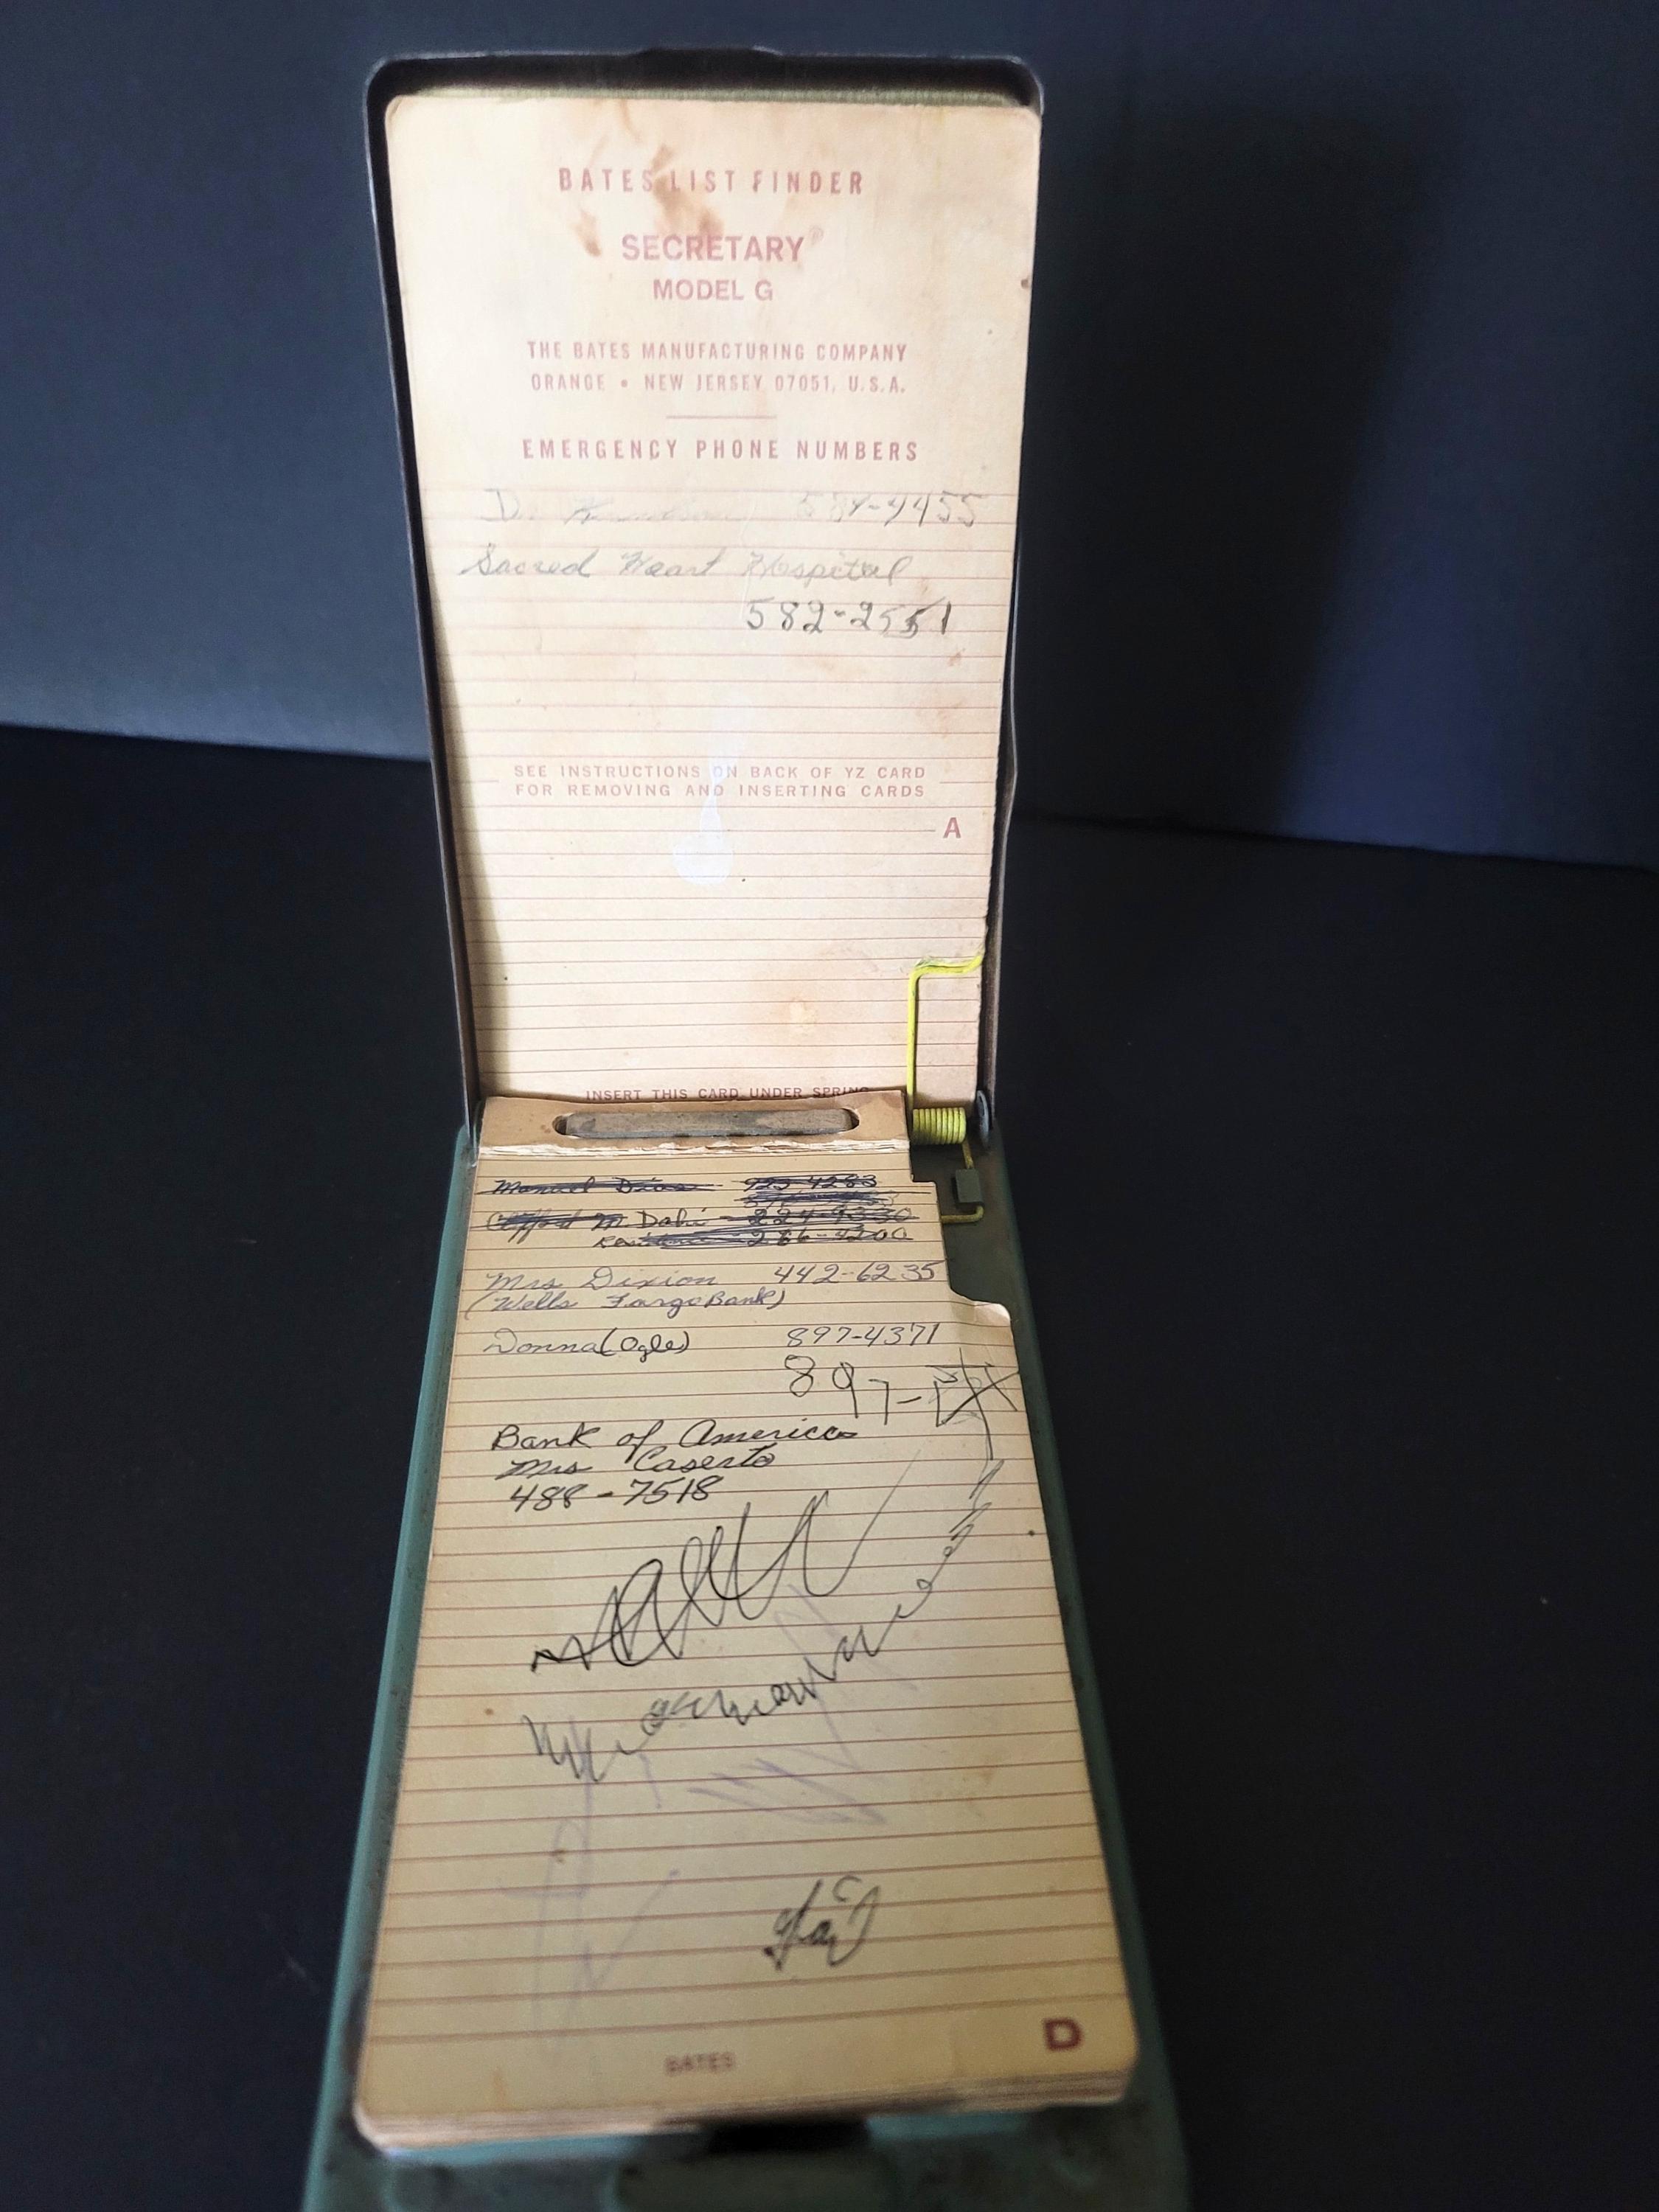 BATES LIST FINDER
SECRETARY®
MODEL G
THE BATES MANUFACTURING COMPANY
ORANGE • NEW JERSEY 07051, U.S.A.
EMERGENCY PHONE NUMBERS
D. 584-4455
Sacred Heart Hospital
582-2551
SEE INSTRUCTIONS ON BACK OF YZ CARD
FOR REMOVING AND INSERTING CARDS
A
INSERT THIS CARD UNDER SPRING
Manuel Dias 923-4283
Clifford M. Dahi 224-9330
Residence 286-4200
Mrs Dixion 442-6235
(Wells Fargo Bank)
Donna (Ogle) 897-4371
897-
Bank of America
Mrs Caserta
488-7518
D
BATES